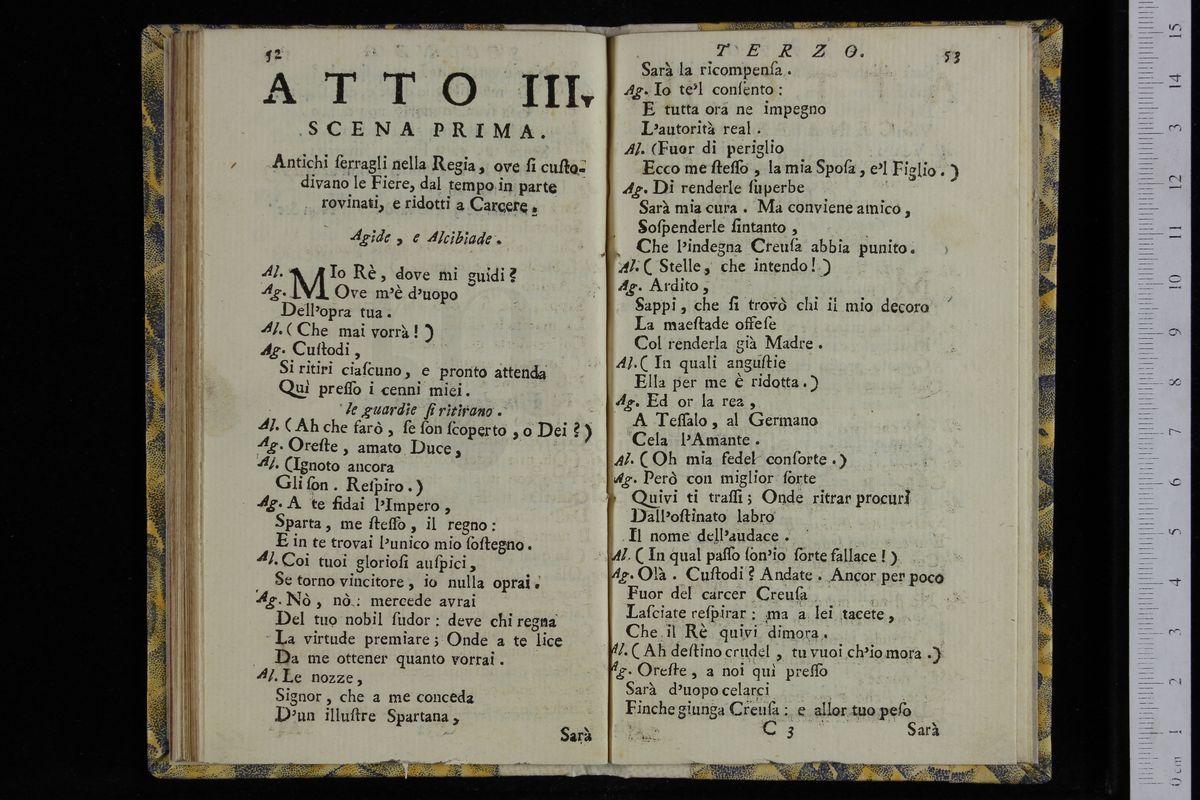 52
ATTO III.
SCENA PRIMA.
Antichi ſerragli nella Regia, ove ſi cuſto-
divano le Fiere, dal tempo in parte
rovinati, e ridotti a Carcere.
Agide, e Alcibiade.
Al. MIo Rè, dove mi guidi?
Ag. Ove m'è d'uopo
Dell'opra tua.
Al. (Che mai vorrà!)
Ag. Cuſtodi,
Si ritiri ciaſcuno, e pronto attenda
Quì preſſo i cenni miei.
le guardie ſi ritirano.
Al. (Ah che farò, ſe ſon ſcoperto, o Dei?)
Ag. Oreſte, amato Duce,
Al. (Ignoto ancora
Gli ſon. Reſpiro.)
Ag. A te fidai l'Impero,
Sparta, me ſteſſo, il regno:
E in te trovai l'unico mio ſoſtegno.
Al. Coi tuoi glorioſi auſpici,
Se torno vincitore, io nulla oprai.
Ag. Nò, nò: mercede avrai
Del tuo nobil ſudor: deve chi regna
La virtude premiare; Onde a te lice
Da me ottener quanto vorrai.
Al. Le nozze,
Signor, che a me conceda
D'un illuſtre Spartana,
Sarà
TERZO. 53
Sarà la ricompenſa.
Ag. Io te'l conſento:
E tutta ora ne impegno
L'autorità real.
Al. (Fuor di periglio
Ecco me ſteſſo, la mia Spoſa, e'l Figlio.)
Ag. Di renderle ſuperbe
Sarà mia cura. Ma conviene amico,
Soſpenderle ſintanto,
Che l'indegna Creuſa abbia punito.
Al. (Stelle, che intendo!)
Ag. Ardito,
Sappi, che ſi trovò chi il mio decoro
La maeſtade offeſe
Col renderla già Madre.
Al. (In quali anguſtie
Ella per me è ridotta.)
Ag. Ed or la rea,
A Teſſalo, al Germano
Cela l'Amante.
Al. (Oh mia fedel conſorte.)
Ag. Però con miglior ſorte
Quivi ti traſſi; Onde ritrar procuri
Dall'oſtinato labro
Il nome dell'audace.
Al. (In qual paſſo ſon'io ſorte fallace!)
Ag. Olà. Cuſtodi? Andate. Ancor per poco
Fuor del carcer Creuſa
Laſciate reſpirar: ma a lei tacete,
Che il Rè quivi dimora.
Al. (Ah deſtino crudel, tu vuoi ch'io mora.)
Ag. Oreſte, a noi quì preſſo
Sarà d'uopo celarci
Finche giunga Creuſa: e allor tuo peſo
C 3 Sarà
0 cm 1 2 3 4 5 6 7 8 9 10 11 12 13 14 15